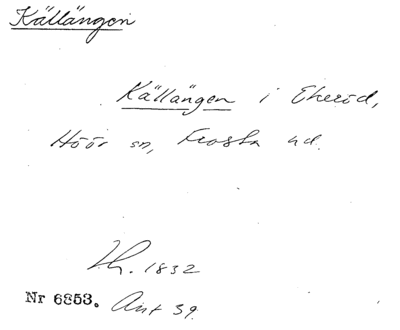 Källängen
Källängen i Ekeröd,
Höör sn, Frosta hd.
Lh. 1832
Nr 6853. Ant 39.